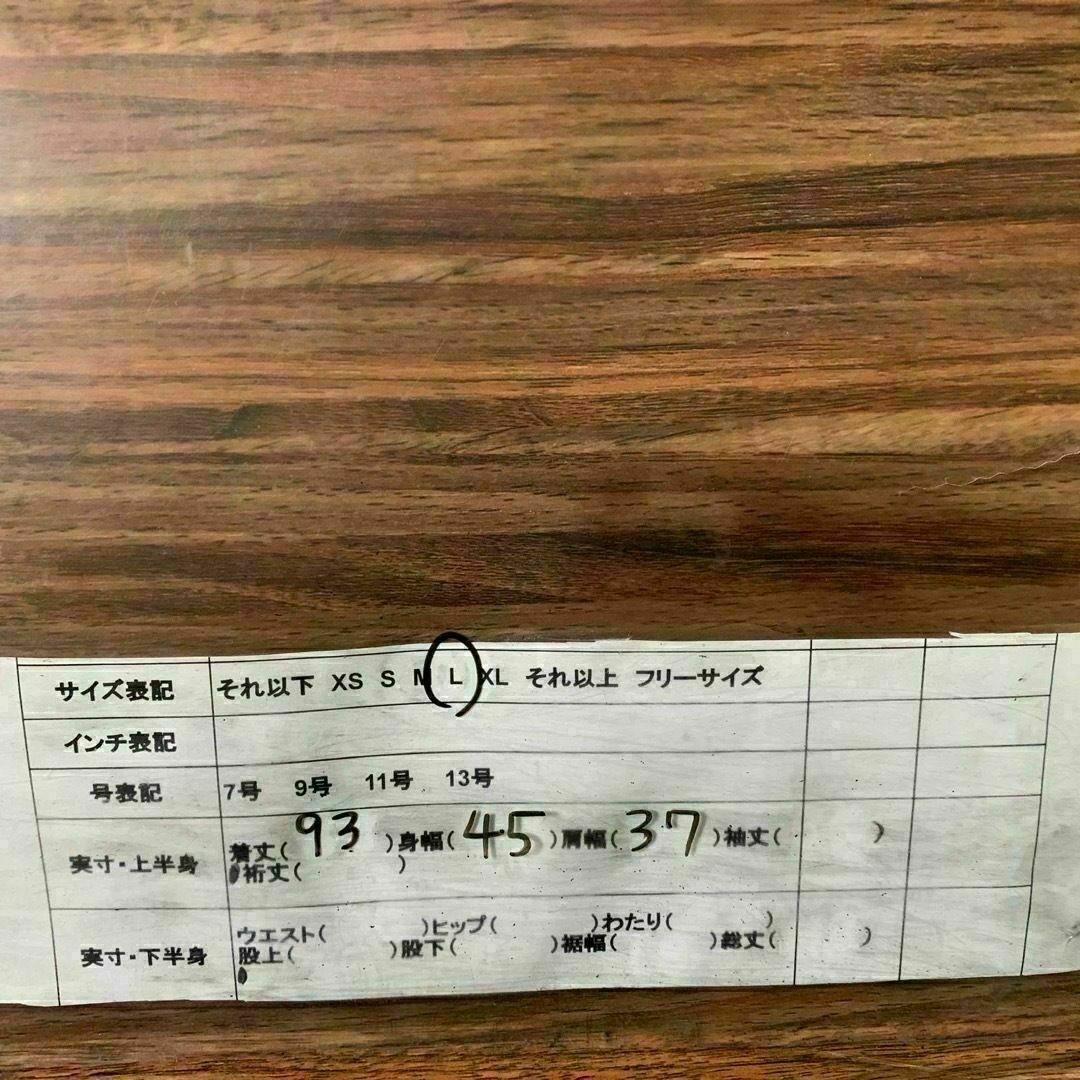 サイズ表記 それ以下 XS S M L XL それ以上 フリーサイズ
インチ表記
号表記 7号 9号 11号 13号
実寸・上半身 着丈( 93 )身幅( 45 )肩幅( 37 )袖丈( )
裄丈( )
実寸・下半身 ウエスト( )ヒップ( )わたり( )
股上( )股下( )裾幅( )総丈( )